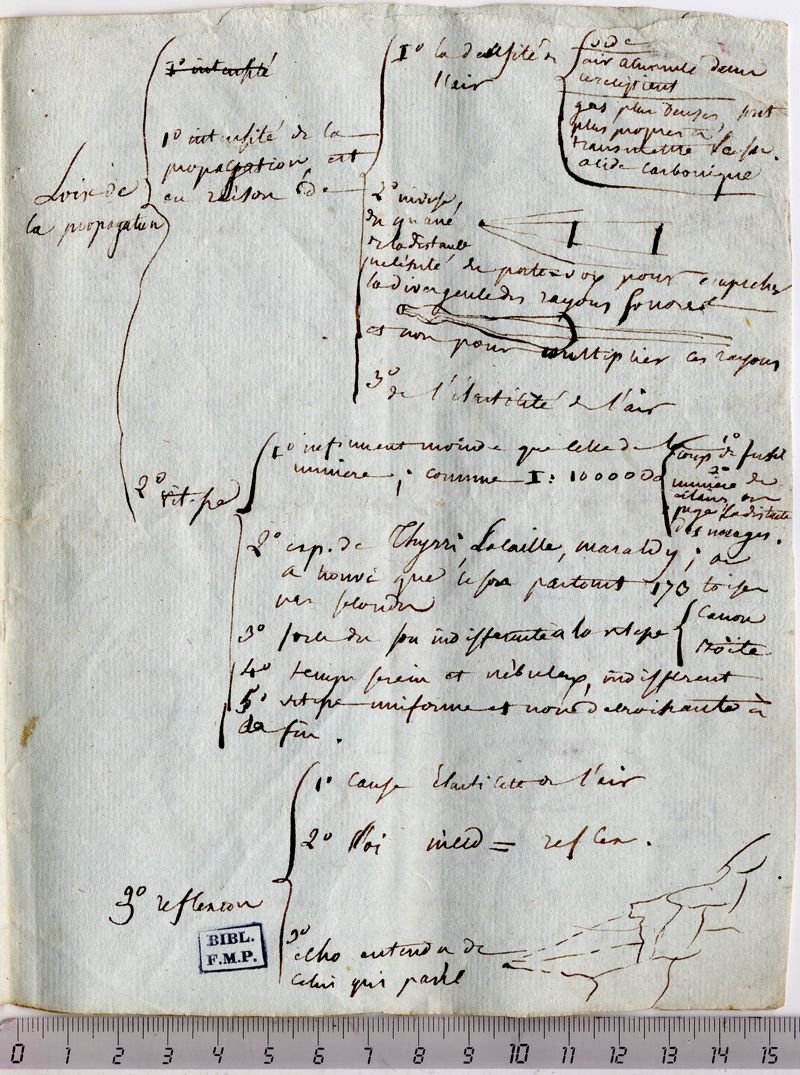 Loix de
la propagation
1º intensité
1º intensité de la
propagation, est
en raison de
1º la densité de
l'air
vide
air accumulé dans
le récipient
gas plus denses sont
plus propres à
transmettre le son.
acide carbonique
2º inverse,
du quarré
de la distance
nécessité du porte-voix pour empecher
la divergence des rayons sonores
et non pour multiplier ces rayons
3º
de l'élasticité de l'air
2º
vitesse
1º infiniment moindre que celle de la
lumiere; comme 1: 10000
1º
coup de fusil
2º
lumière de
éclairs, on
juge la distance
des nuages.
2º exp. de Thyrri, Lacaille, maraldy; on
a trouvé que le son parcourt 173 toises
par seconde
3º force du son indifferente a la vitesse
Canon
boëte
4º temps serein et nébuleux, indifferent
5º vitesse uniforme et non decroissante à
la fin.
3º reflexion
1º Cause élasticité de l'air
2º loi incid = reflex.
3º
echo entendu de
celui qui parle
BIBL.
F.M.P.
0 1 2 3 4 5 6 7 8 9 10 11 12 13 14 15